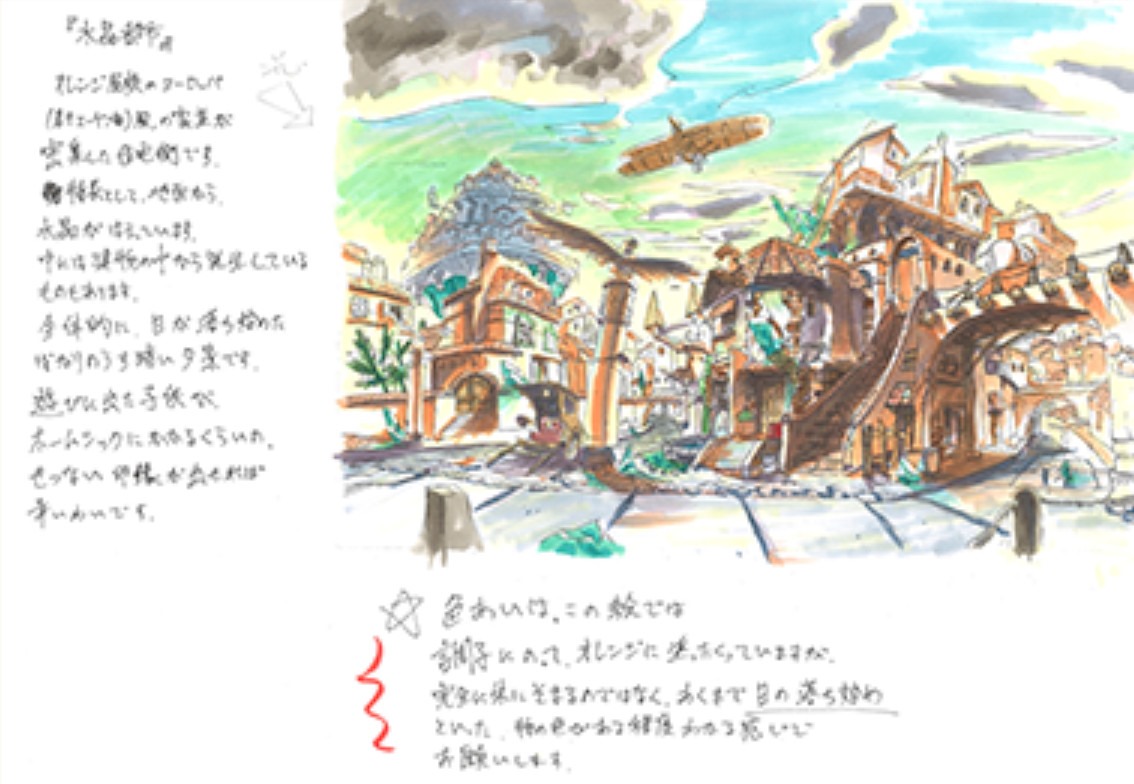 『水晶都市』
オレンジ屋根のヨーロッパ
風の家並が
密集した住宅街です。
特長として、地面から、
水晶がはえています。
中には建物の中から発生している
ものもあります。
全体的に、日が落ち始めた
ばかりのうす暗い夕景です。
遊びに出た子供が、
ホームシックにかかるくらいの、
せつない印象が出せれば
幸いかいです。
☆ 色あいは、この絵では
調子にのって、オレンジに塗ったくっていますが、
完全に朱にそまるのではなく、あくまで日の落ち始め
といった、物の色がある程度わかる感じで
お願いします。